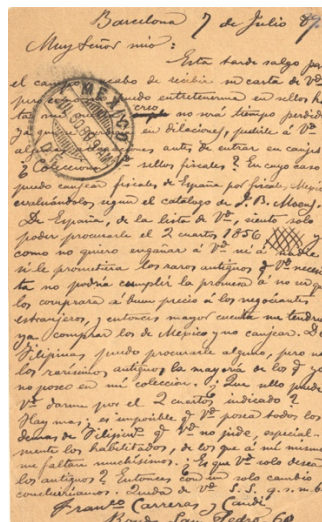 Barcelona 7 de Julio 89
Muy Señor mio:
Esta tarde salgo para
el campo acabo de recibir su carta de Vd
pero como puedo entretenerme en sellos ha
creo no será tiempo perdido
MEXICO
ya que en dilaciones, pedirle á Vd
algunas antes de entrar en canjes
¿Colecciona Vd sellos fiscales? En cuyo caso
puedo canjear fiscales de España por fiscales Mejico
evaluándolos segun el catálogo de J. B. Moens.
De España, de la lista de Vd, siento solo
poder procurarle el 2 cuartos 1856 y
como no quiero engañar á Vd ni á nadie
si le prometiera los raros antiguos q Vd necesi
ta no podria cumplir la promesa á no ser que
los comprara á buen precio á los negociantes
estranjeros, y entonces mayor cuenta me tendria
ya comprar los de Mexico y no canjear. De
Filipinas puedo procurarle alguno, pero no
los rarisimos antiguos la mayoria de los q yo
no poseo en mi coleccion. ¿Que sello puede
Vd darme por el 2 cuartos indicado?
Hay mas; es imposible q Vd posea todos los
demas de Filipinas q Vd no pide, especial-
mente los habilitados, de los que á mi mismo
me faltan muchisimos. ¿Es que Vd solo desea
los antiguos? Entonces con un solo cambio
concluiriamos. Queda de Vd S.S. q.s.m.b.
Franco Carreras y Candi
Ronda San Pedro 60